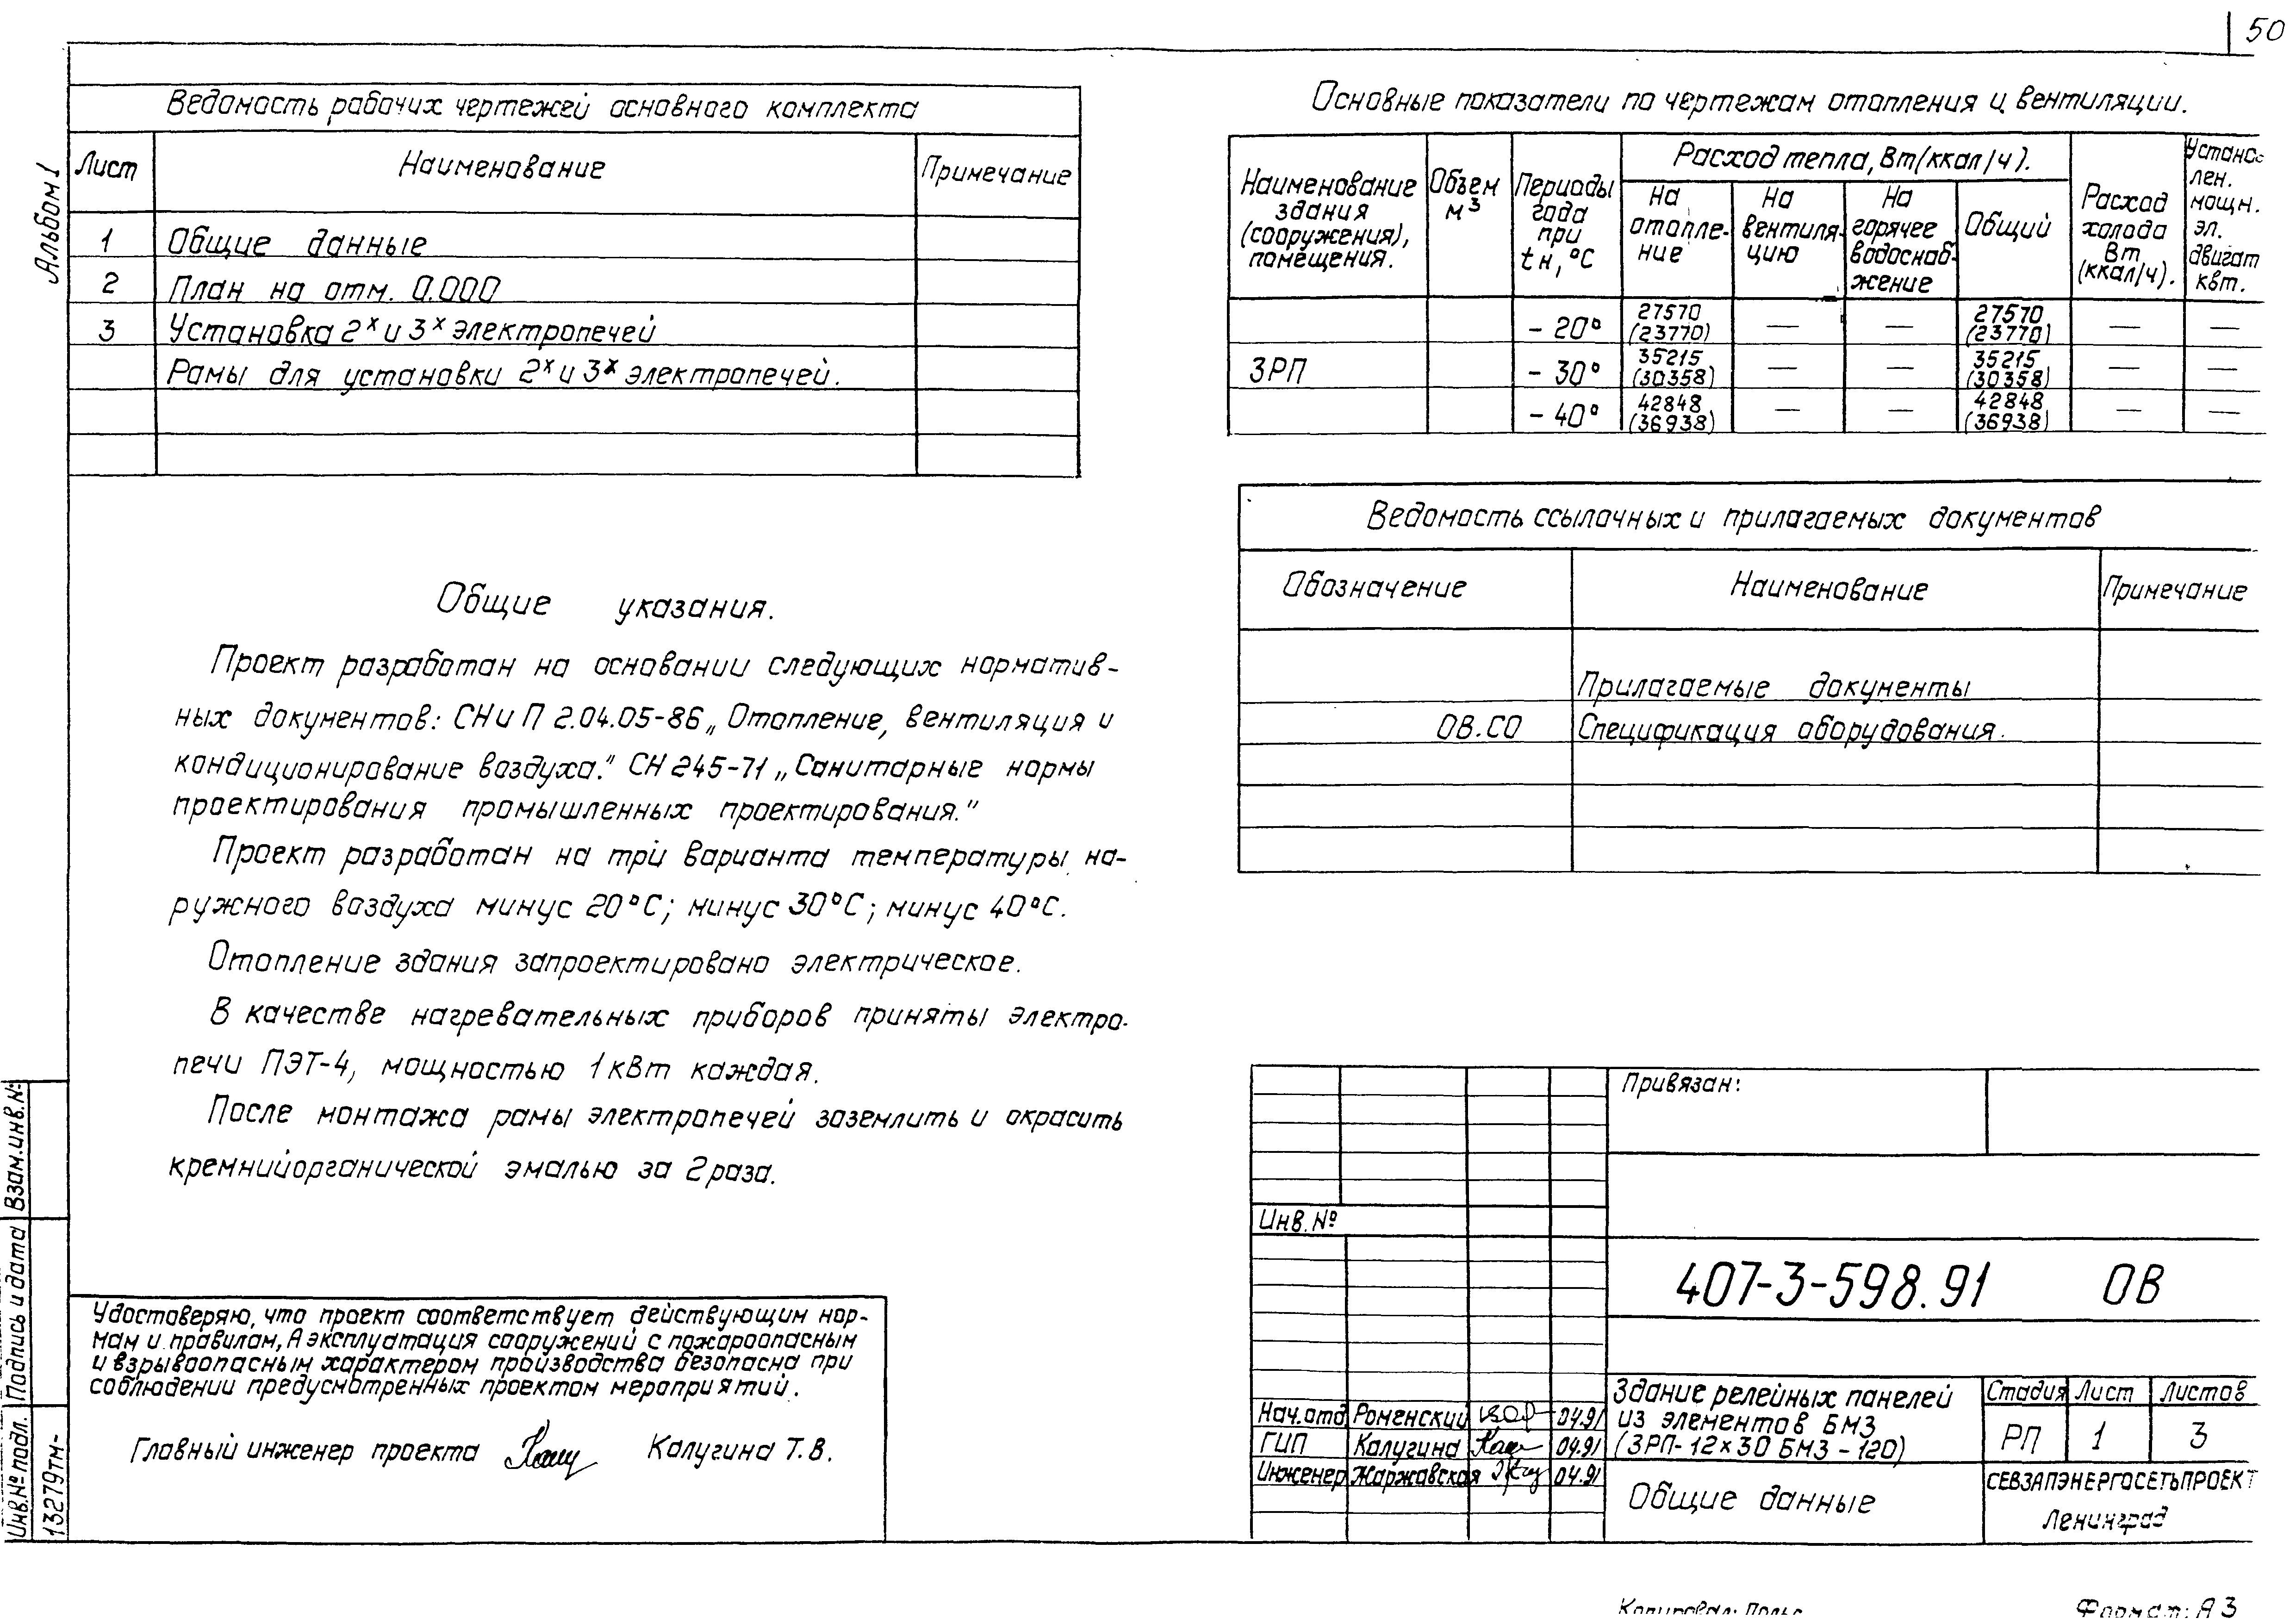 50
Альбом 1
Ведомость рабочих чертежей основного комплекта
Лист Наименование Примечание
1 Общие данные
2 План на отм. 0.000
3 Установка 2х и 3х электропечей
Рамы для установки 2х и 3х электропечей.
Общие указания.
Проект разработан на основании следующих норматив-
ных документов: СНиП 2.04.05-86 „Отопление, вентиляция и
кондиционирование воздуха." СН 245-71 „Санитарные нормы
проектирования промышленных проектирования."
Проект разработан на три варианта температуры на-
ружного воздуха минус 20°С; минус 30°С; минус 40°С.
Отопление здания запроектировано электрическое.
В качестве нагревательных приборов приняты электро-
печи ПЭТ-4, мощностью 1 кВт каждая.
После монтажа рамы электропечей заземлить и окрасить
кремнийорганической эмалью за 2 раза.
Удостоверяю, что проект соответствует действующим нор-
мам и правилам, А эксплуатация сооружений с пожароопасным
и взрывоопасным характером производства безопасна при
соблюдении предусмотренных проектом мероприятий.
Главный инженер проекта Калугина Т.В.
Инв.№ подл. Подпись и дата Взам.инв.№
13279тм-
Основные показатели по чертежам отопления и вентиляции.
Наименование здания (сооружения), помещения.
Объем м³
Периоды года при tн, °С
Расход тепла, Вт/(ккал/ч).
На отопле-ние
На вентиля-цию
На горячее водоснаб-жение
Общий
Расход холода Вт (ккал/ч).
лен. мощн. эл. двигат квт.
- 20° 27570 (23770) — — 27570 (23770) — —
ЗРП - 30° 35215 (30358) — — 35215 (30358) — —
- 40° 42848 (36938) — — 42848 (36938) — —
Ведомость ссылочных и прилагаемых документов
Обозначение Наименование Примечание
Прилагаемые документы
ОВ.СО Спецификация оборудования.
Привязан:
Инв. №
407-3-598.91 ОВ
Нач.отд Роменский 04.91
ГИП Калугина 04.91
Инженер Жаржавская 04.91
Здание релейных панелей
из элементов БМЗ
(ЗРП-12×30 БМЗ-120)
Стадия Лист Листов
РП 1 3
Общие данные
СЕВЗАПЭНЕРГОСЕТЬПРОЕКТ
Ленинград
Формат: А3